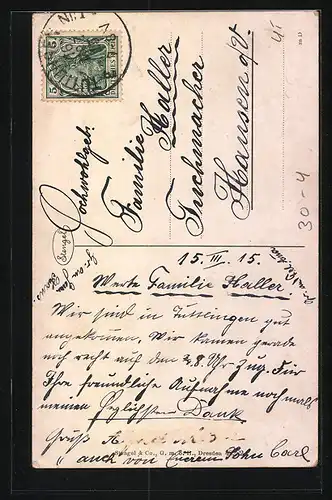 TUTTLINGEN
Nr. 1
5
Hochwohlgeb.
Familie
Haller
Tuchmacher
Hausen o/V.
30-4
Stengel
15. III. 15.
Werte Familie Haller.
Wir sind in Tuttlingen gut
angekommen. Wir kamen gerade
noch recht auf den Uhr Zug. Für
Ihre freundliche Aufnahme nochmals
meinen Dank
Gruß
Stengel & Co., G. m. b. H., Dresden
" auch von Eurem Sohn Carl